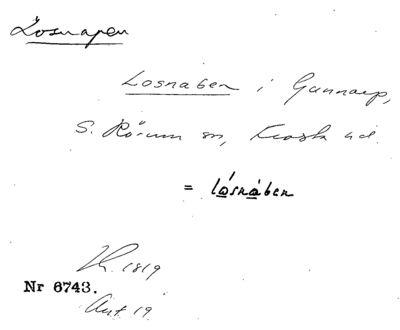 Losnapen
Losnaben i Gunnarp,
S. Rörum sn, Frosta hd.
= lósnàben
Lk. 1819
Nr 6743.
Ant 19